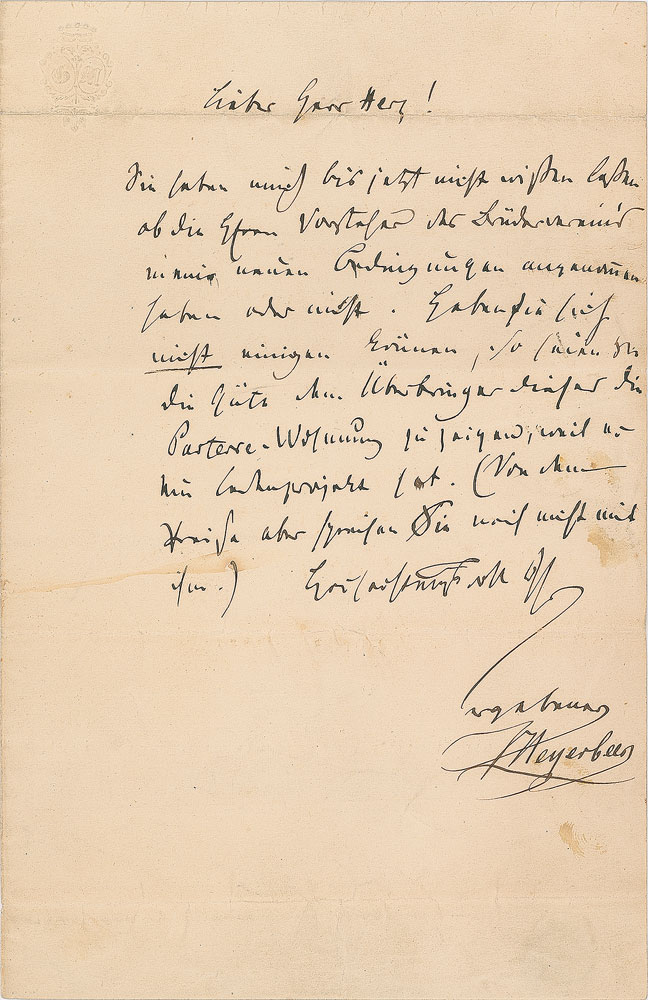 Lieber Herr Herz!
Sie haben mich bis jetzt nicht wißen laßen
ob die Hfrren Vorsteher des Brüdervereins
meine neuen Bedingungen angenommen
haben oder nicht. Haben sie sich
nicht einigen können, so seien Sie
die Güte dem Überbringer dieses die
Parterre-Wohnung zu zeigen, weil er
hat. (Von dem
Preise aber sprechen Sie noch nicht mit
ihm.) Hochachtungsvoll
ergebener
Meyerbeer